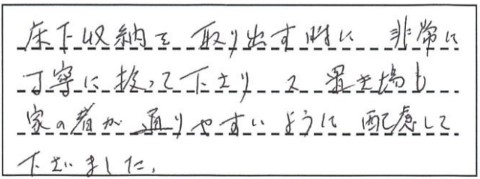 床下収納を取り出す時に 非常に
丁寧に扱って下さり 又 置き場も
家の者が通りやすいように配慮して
下さいました。